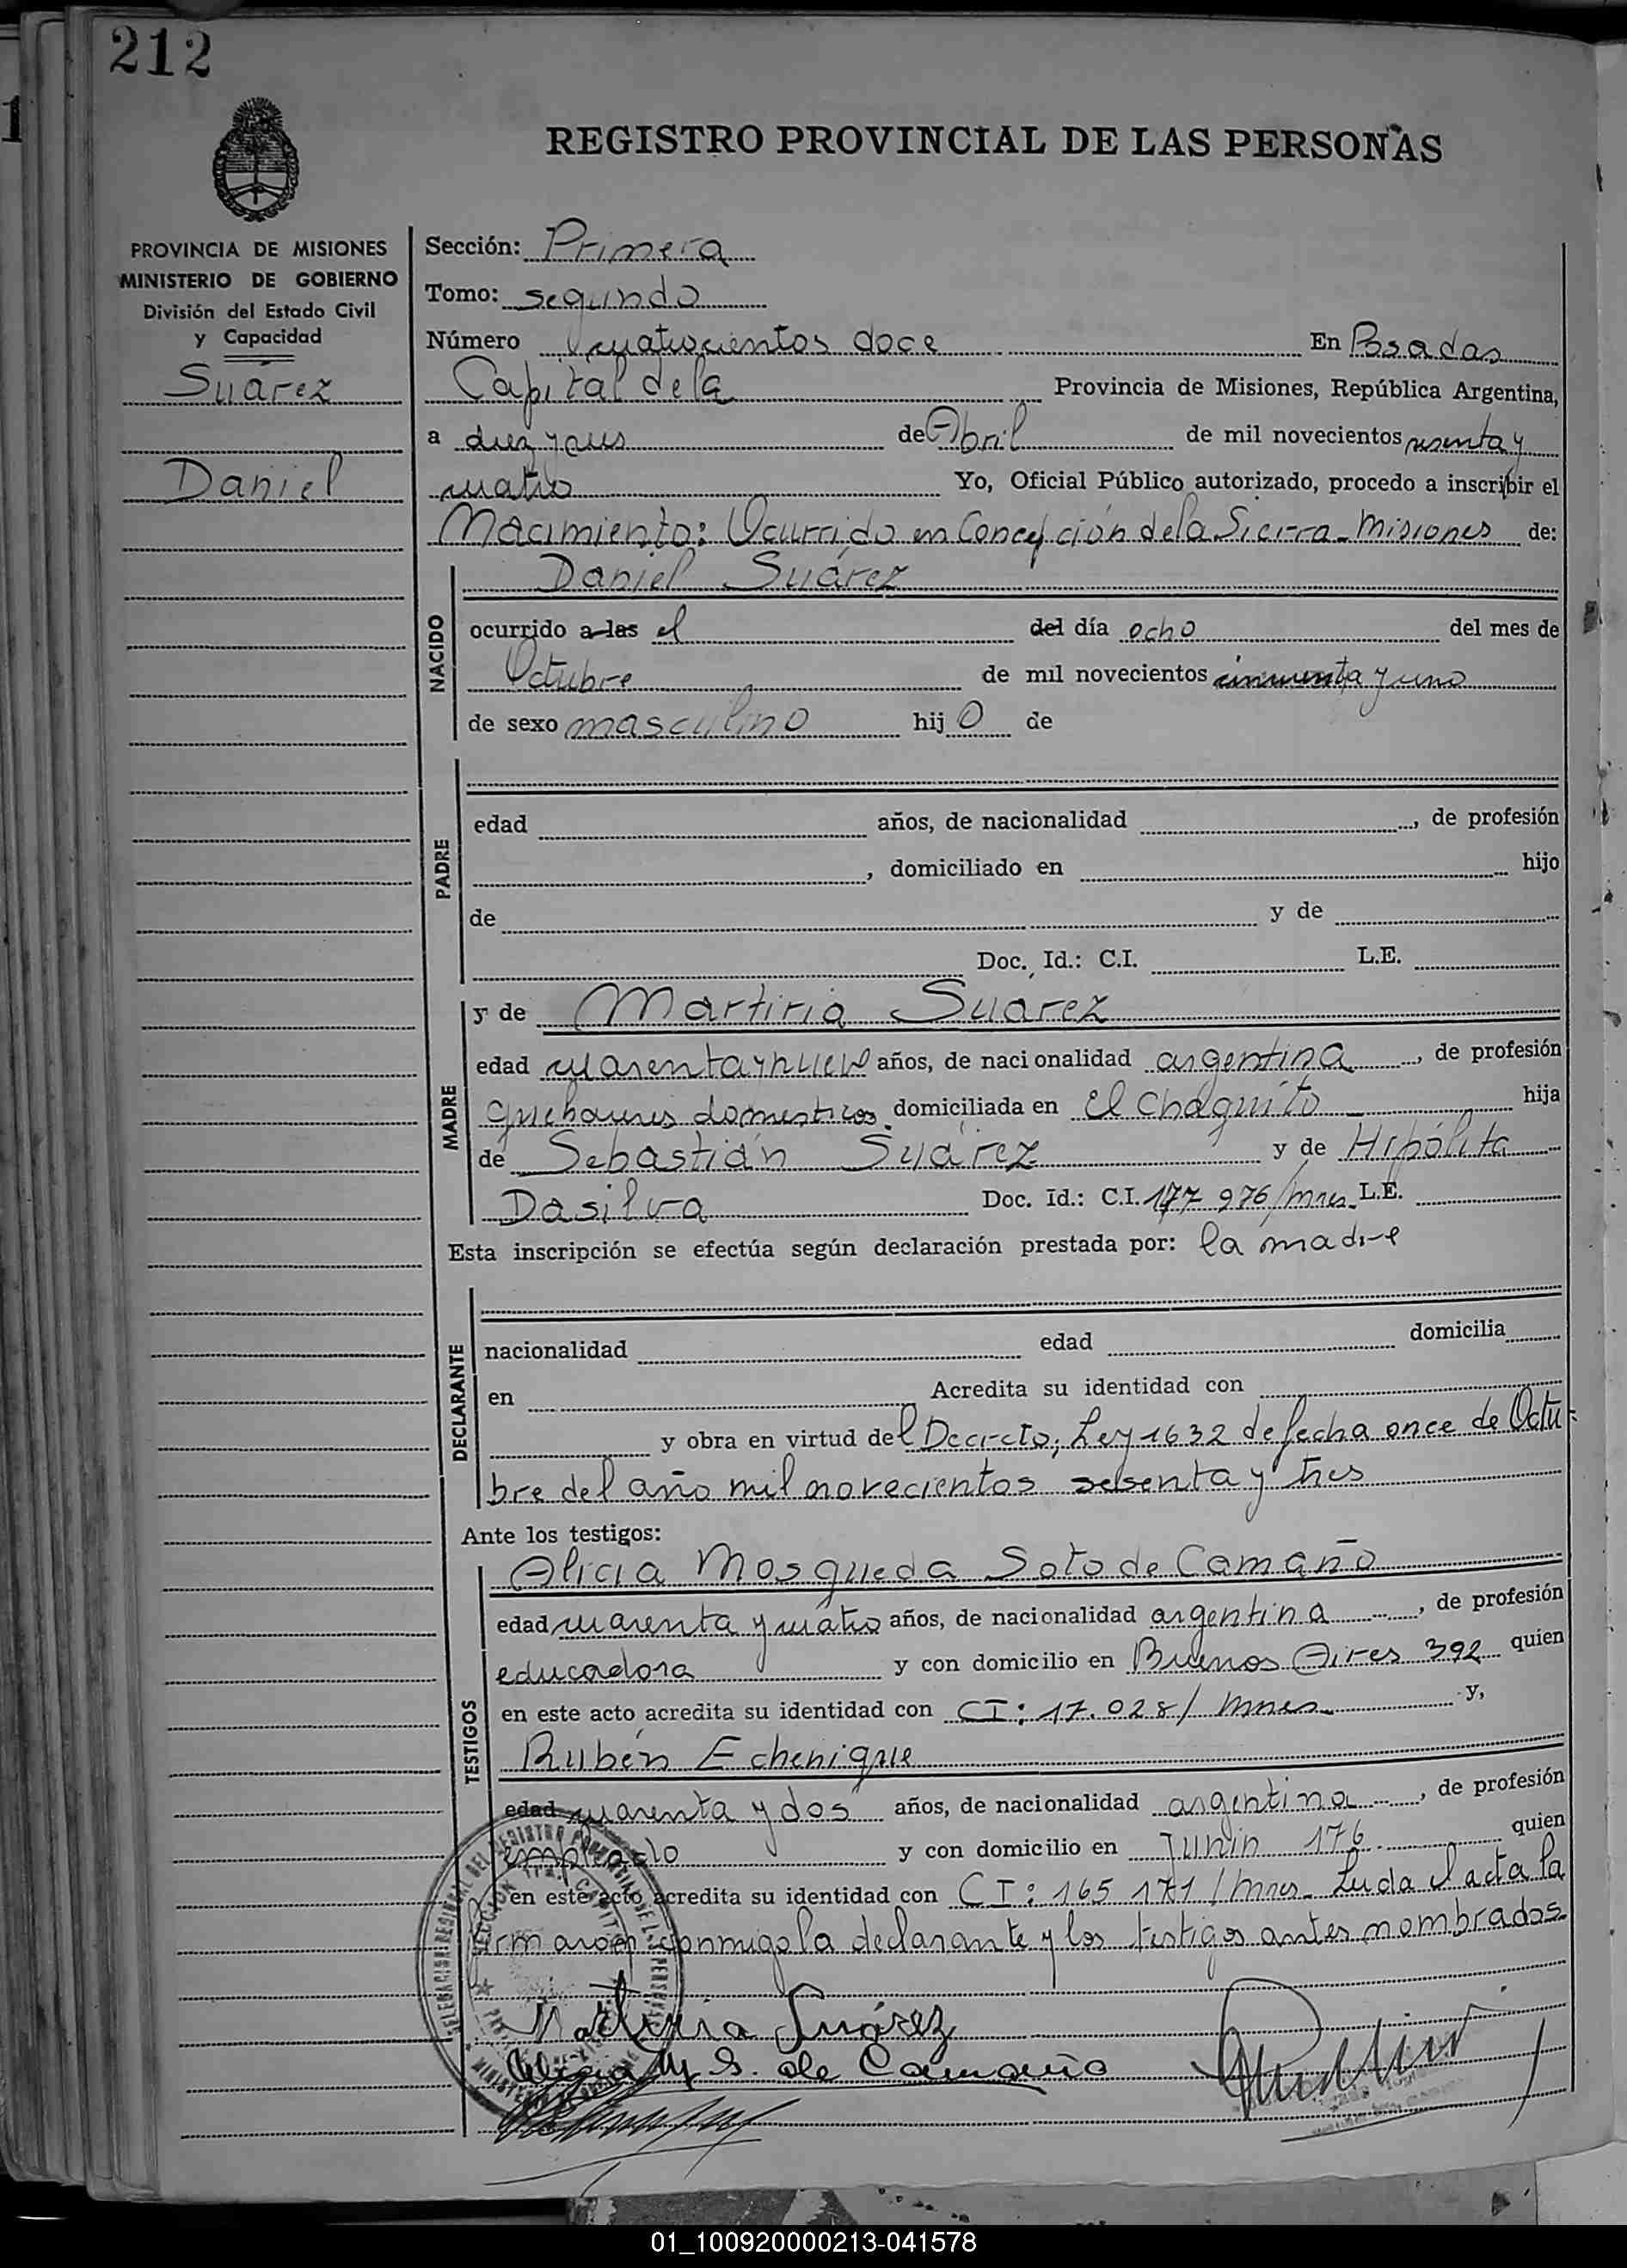 212
REGISTRO PROVINCIAL DE LAS PERSONAS
PROVINCIA DE MISIONES
MINISTERIO DE GOBIERNO
División del Estado Civil
y Capacidad
Suárez
Daniel
Sección: Primera
Tomo: segundo
Número cuatrocientos doce En Posadas
Capital de la Provincia de Misiones, República Argentina,
a diez y seis de Abril de mil novecientos sesenta y
cuatro Yo, Oficial Público autorizado, procedo a inscribir el
Nacimiento: Ocurrido en Concepción de la Sierra - Misiones de:
NACIDO
Daniel Suárez
ocurrido a las el del día ocho del mes de
Octubre de mil novecientos cincuenta y uno
de sexo masculino hijo de
PADRE
edad años, de nacionalidad , de profesión
, domiciliado en hijo
de y de
Doc. Id.: C.I. L.E.
MADRE
y de Martiria Suárez
edad cuarenta y nueve años, de nacionalidad argentina , de profesión
quehaceres domesticos, domiciliada en el chaquito hija
de Sebastián Suárez y de Hipólita
Dasilva Doc. Id.: C.I. 177 976/mnes. L.E.
Esta inscripción se efectúa según declaración prestada por: la madre
DECLARANTE
nacionalidad edad domicilia
en Acredita su identidad con
y obra en virtud del Decreto; Ley 1632 de fecha once de Octu-
bre del año mil novecientos sesenta y tres
Ante los testigos:
TESTIGOS
Alicia Mosqueda Soto de Camaño
edad cuarenta y cuatro años, de nacionalidad argentina , de profesión
educadora y con domicilio en Buenos Aires 392 quien
en este acto acredita su identidad con CI: 17.028/mnes y,
Rubén Echenique
edad cuarenta y dos años, de nacionalidad argentina , de profesión
empleado y con domicilio en Junin 176 quien
en este acto acredita su identidad con CI: 165 171/mnes. Leida el acta la
firmaron conmigo la declarante y los testigos antes nombrados.
Martiria Suárez
Alicia M. S. de Camaño
01_100920000213-041578